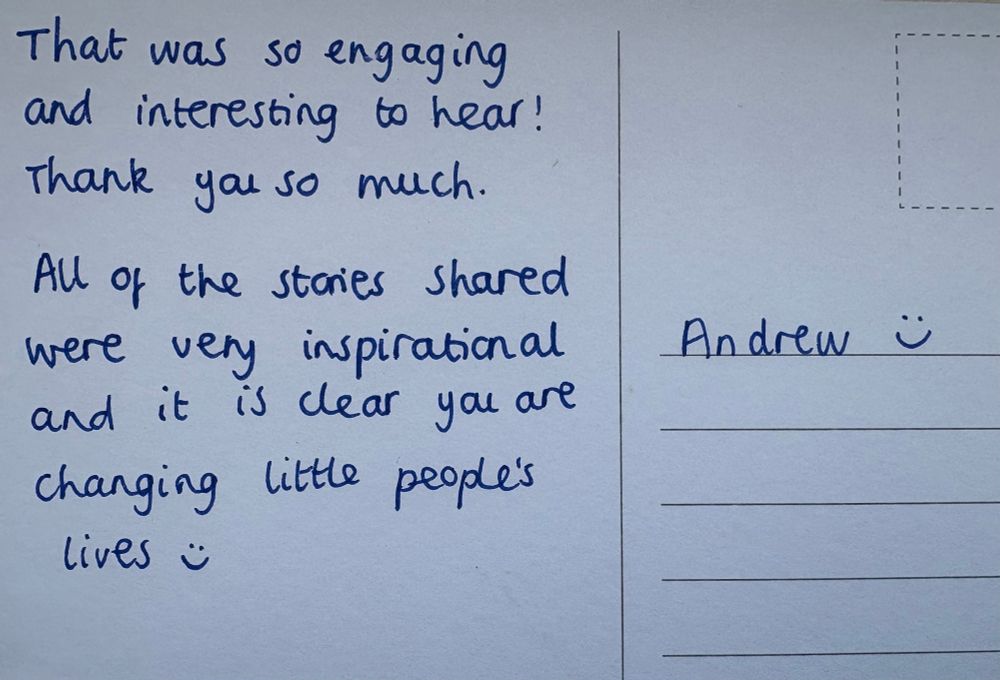 That was so engaging
and interesting to hear!
Thank you so much.
All of the stories shared
were very inspirational
and it is clear you are
changing little people's
lives ü
Andrew ü